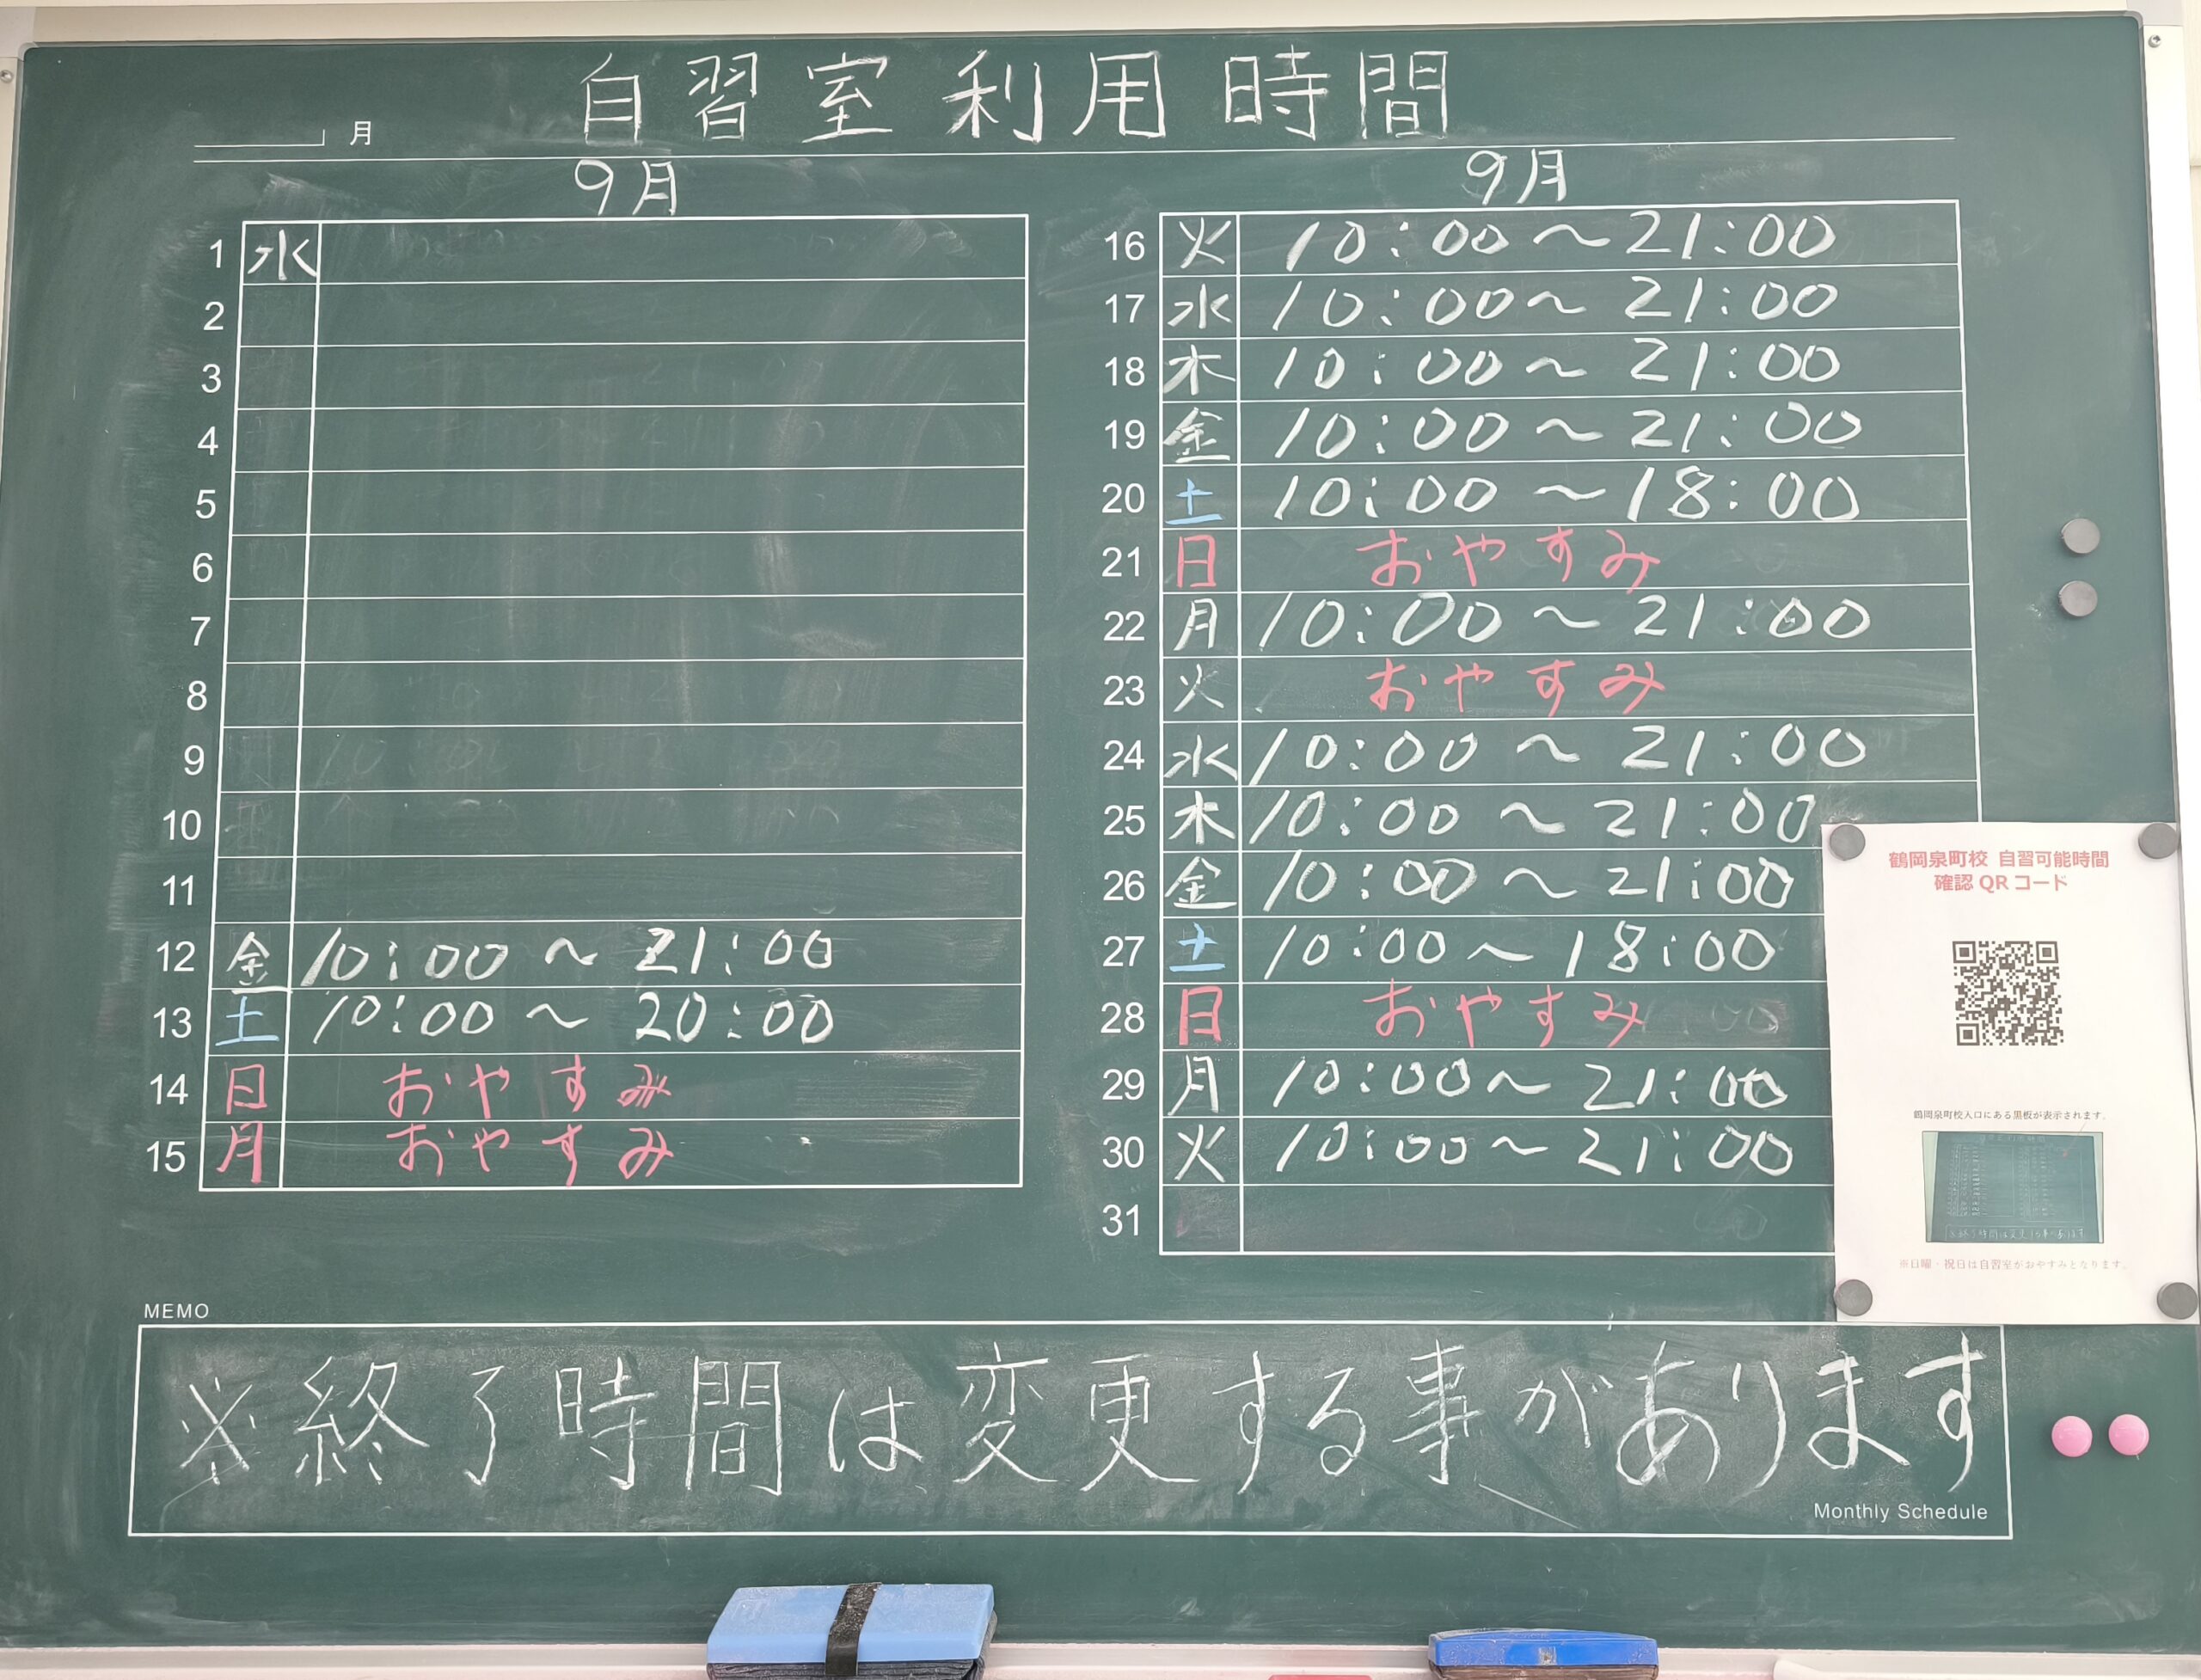 自習室利用時間
月
9月
1 水
2
3
4
5
6
7
8
9
10
11
12 金 10:00 ~ 21:00
13 土 10:00 ~ 20:00
14 日 おやすみ
15 月 おやすみ
9月
16 火 10:00~21:00
17 水 10:00~21:00
18 木 10:00~21:00
19 金 10:00~21:00
20 土 10:00~18:00
21 日 おやすみ
22 月 10:00~21:00
23 火 おやすみ
24 水 10:00~21:00
25 木 10:00~21:00
26 金 10:00~21:00
27 土 10:00~18:00
28 日 おやすみ
29 月 10:00~21:00
30 火 10:00~21:00
31
鶴岡泉町校 自習可能時間
確認QRコード
鶴岡泉町校入口にある黒板が表示されます。
※日曜・祝日は自習室がおやすみとなります。
MEMO
※終了時間は変更する事があります
Monthly Schedule